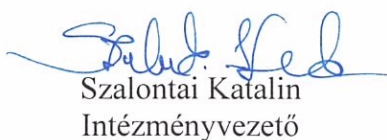 Szalontai Katalin
Intézményvezető